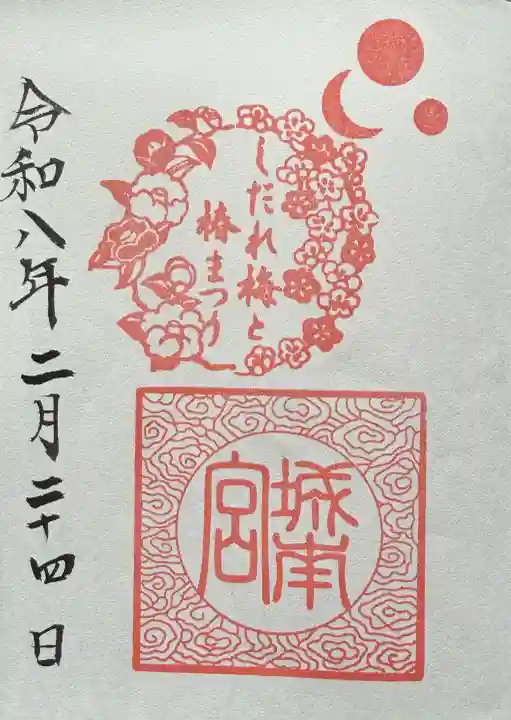 しだれ梅と
椿まつり
城南宮
令和八年二月二十四日